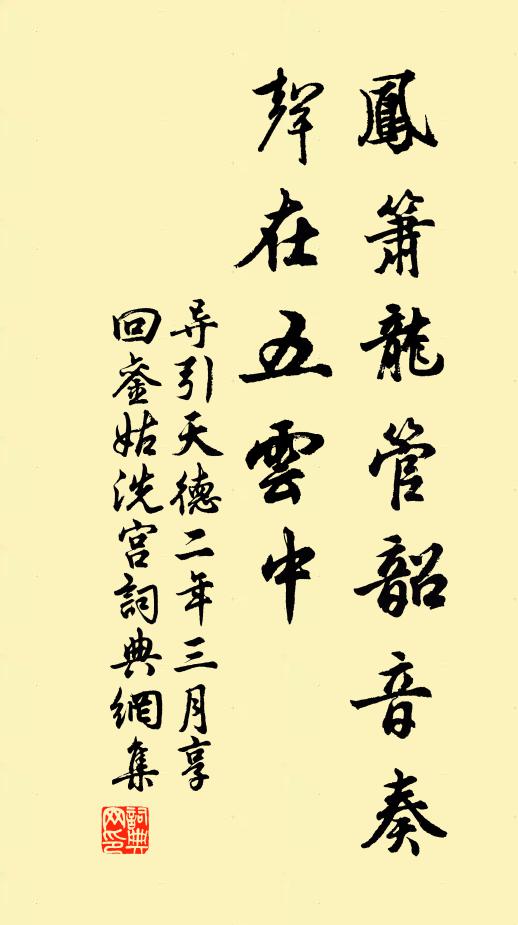 鳳簫龍管韶音奏
聲在五雲中
导引天德二年三月享
回銮姑洗宫詞典網集
詞典网印